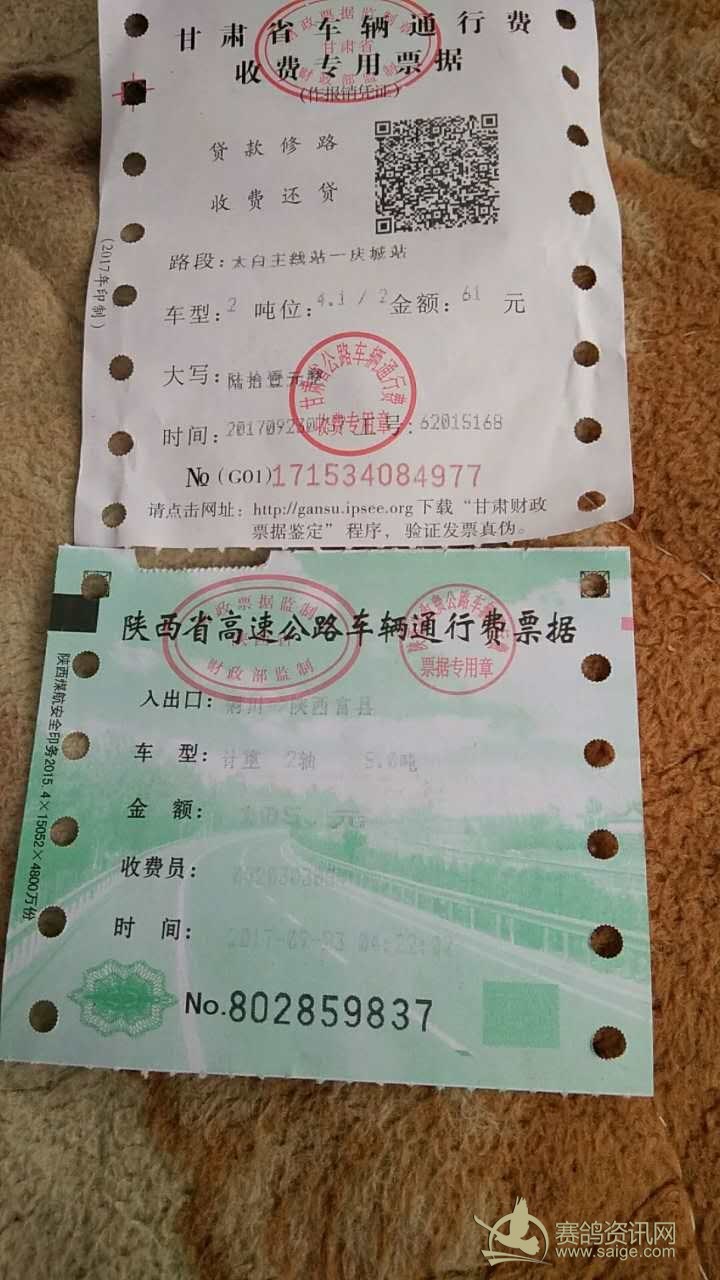 甘肃省车辆通行费
收费专用票据
(作报销凭证)
财政票据监制
甘肃省
财政部监制
贷款修路
收费还贷
(2017年印制)
路段:太白主线站—庆城站
车型:2 吨位:4.1 / 2 金额:61 元
大写:陆拾壹元整
甘肃省公路车辆通行费
收费专用章
时间:20170923 工号:62015168
№ (G01)171534084977
请点击网址:http://gansu.ipsee.org 下载“甘肃财政
票据鉴定”程序,验证发票真伪。
陕西省高速公路车辆通行费票据
政票据监制
财政部监制
票据专用章
陕西煤航安全印务2015.4×15052×4800万份
入出口: 陕西富县
车 型:计重 2轴 5.0吨
金 额:105. 元
收费员:
时 间:2017-09-23 04:22:02
No.802859837
赛鸽资讯网
www.saige.com